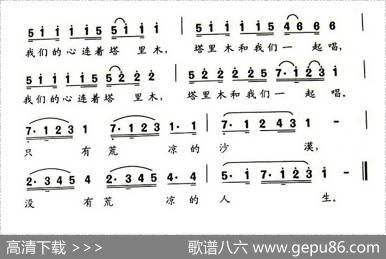 5 i i i i i 5 5 i i i | 5 i i i i i 5 4 6 6 6
我们的心连着塔 里木, 塔里木和我们一 起唱,
5 i i i i i 5 5 2 2 2 | 5 2 2 2 2 5 7· i 2 3 i
我们的心连着塔 里木, 塔里木和我们一 起唱。
7· 1 2 3 1 7· 1 2 3 1· 1 | 7· 1 2 4 3 1
只 有荒 凉的 沙 漠,
2· 3 4 5 2· 3 4 5 i· i | 7· i 2 3 i i -
没 有荒 凉的 人 生。
高清下载 >>> 歌谱八六 www.gepu86.com